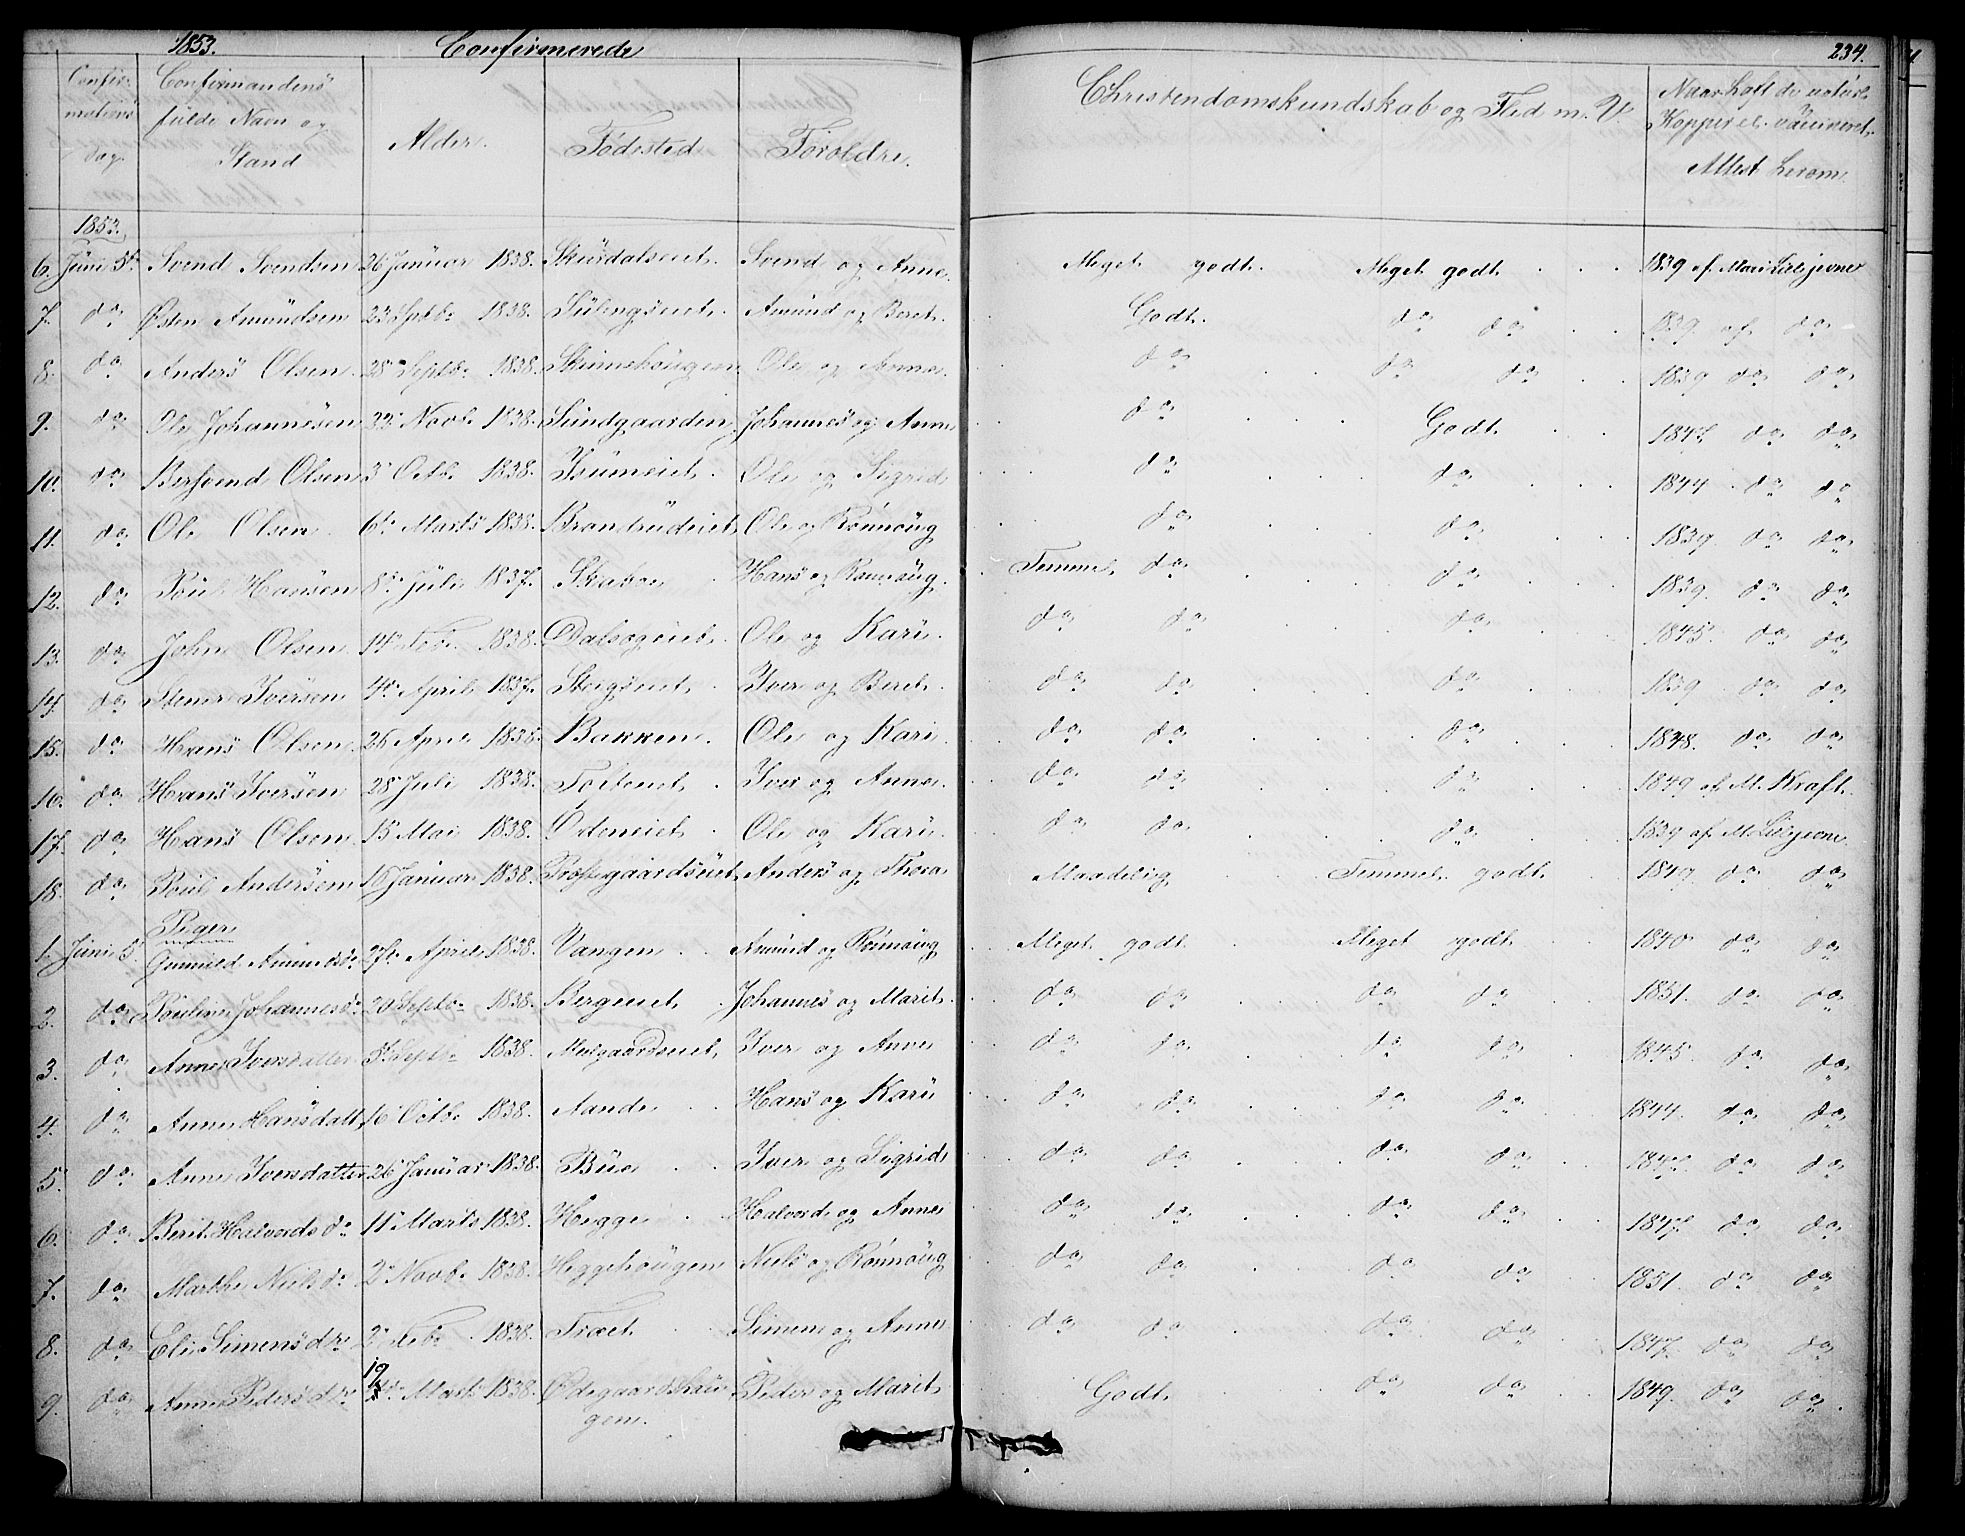 1853. Confirmerede 234.
Confir- Confirmandens
mations fulde Navn og Alder. Fødested Foroldre. Christendomskundskab og Flid m. V. Naar haft de naturl.
dag. Stand Kopper el. vaccineret.
Attest herom
1853.
6. Juni 5te Svend Svendsen 26 Januar 1838. Skurdalseiet. Svend og Anne. Meget godt. Meget godt 1839 af Mari Lillejevne
7. do Østen Amundsen 23 Septbr 1838. Amund og Beret. Godt. do do 1839 af do
8. do Anders Olsen. 28 Septbr 1838. Skinnehougen Ole og Anne. do do do 1839 do do
9. do Ole Johannesen 22 Novbr 1838. Sundgaarden Johannes og Anne do Godt. 1847 do do
10. do Olsen 3 Octbr 1838. Isumeiet. Ole og Sigrid do do 1844 do do
11. do Ole Olsen. 6te Marts 1838. Brandrudeiet Ole og Rønnoug do do 1839. do do
12. do Poul Hansen 8de Juli 1837. Skabo Hans og Rønnoug. Temmel. do do 1839. do do
13. do John Olsen 14 Febr. 1838. Dalsegeiet. Ole og Kari. do do do 1845. do do
14. do Stener Iversen 4de April 1837. Iver og Beret. do do do 1839 do do
15. do Hans Olsen 26 April Bakken. Ole og Kari do do do 1848. do do
16. do Hans Iversen 28 Juli 1838. Tofteeiet Iver og Anne. do do do 1849 af M. Kraft.
17. do Hans Olsen 15 Mai 1838. Ødeneiet Ole og Kari. do do do 1839 af M Lillejevne
18. do Poul Andersen 16 Januar 1838. Præstegaardseiet Anders og Thora Maadelig Temmel. godt. do do
Piger
1. Juni 5 Gunnild Amundsdr 27de April 1838. Vangen Amund og Rønnoug Meget godt. Meget godt 1840 do do
2. do Pauline Johannesdr 20 Septbr 1838. Bergeeiet Johannes og Marit do do do do 1851. do do
3. do Anne Iversdatter Septbr 1838. Iver og Anne do do do do 1845 do do
4. do Anne Hansdatt. 16 Octbr 1838. Aande Hans og Kari do do do do 1844. do do
5. do Anne Iversdatter 26 Januar 1838. Bue Iver og Sigrid do do do do 1847 do do
6. do Berit Halvordsdr 11 Marts 1838. Hegge Halvord og Anne do do do do 1847 do do
7. do Marthe Nielsdr 2 Novbr 1838. Heggehougen Niels og Rønnoug do do do do 1851 do do
8. do Eli Simensdr 2 Febr 1838. Træet Simen og Anne do do do do 1847. do do
9. do Anne Pedersdr 19 Marts 1838. Ødegaardshau- Peder og Marit Godt. do do 1849. do do.
gen.